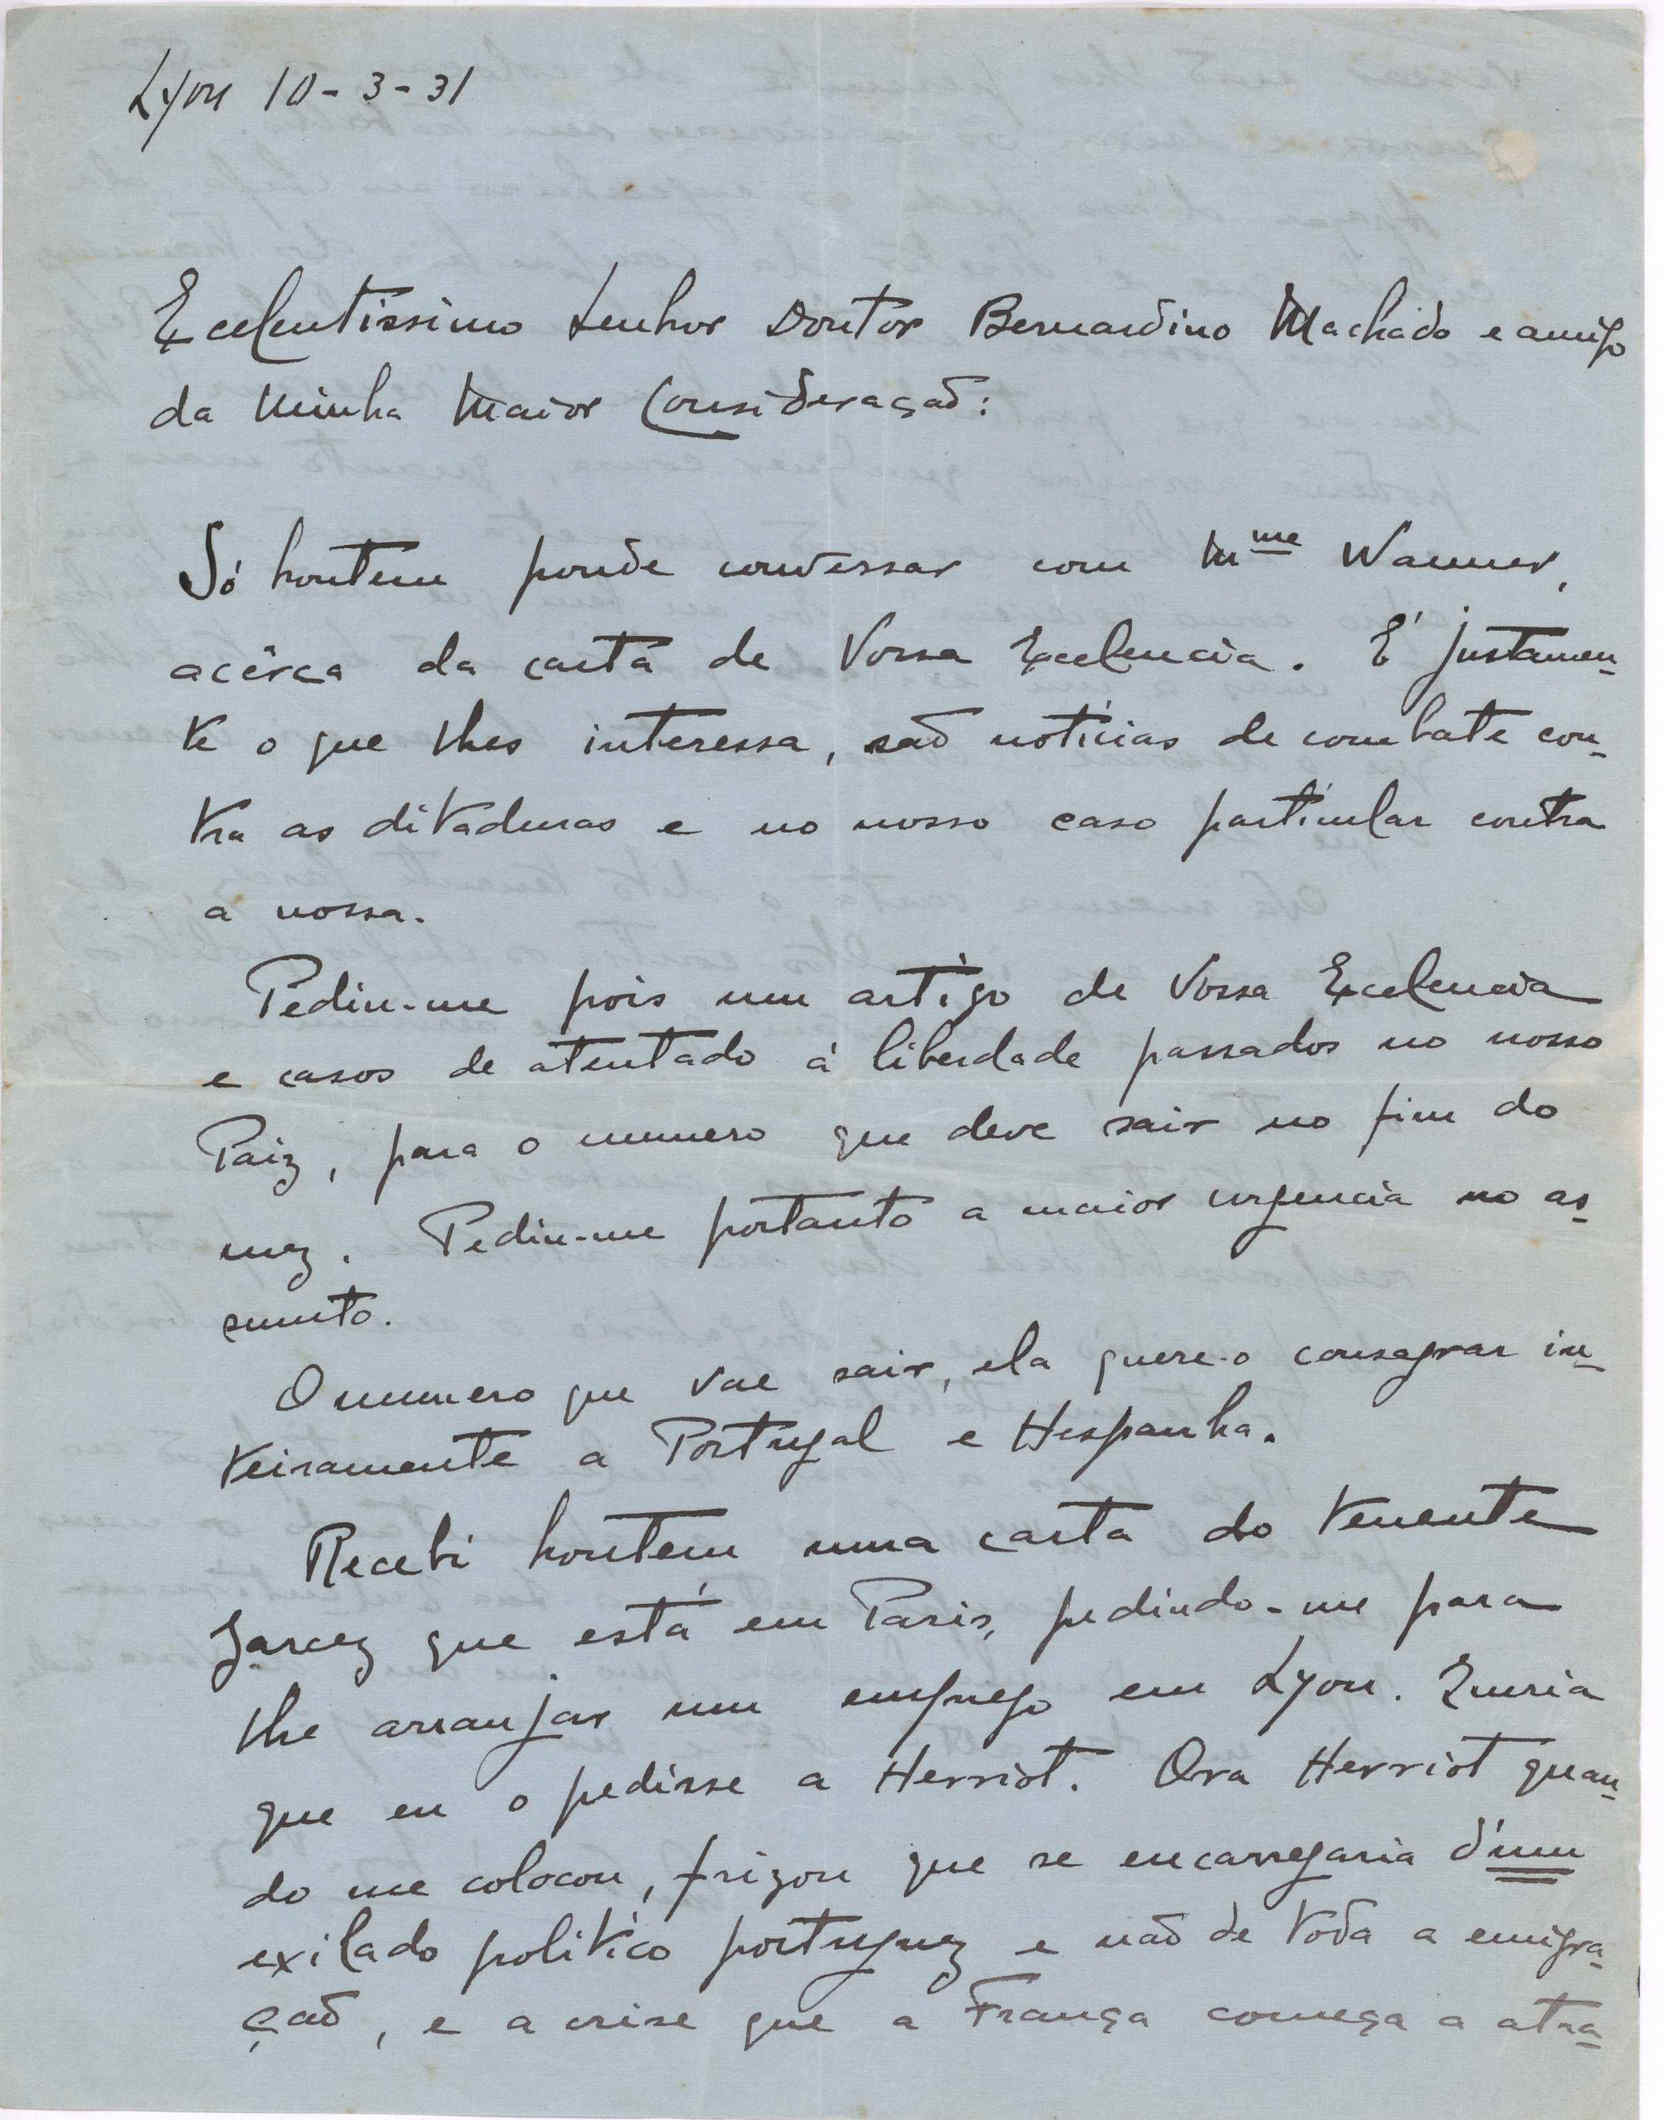 Lyon 10-3-31
Excelentissimo Senhor Doutor Bernardino Machado e amigo
da Minha Maior Consideração:
Só hontem poude conversar com Mme Wanner,
acêrca da carta de Vossa Excelencia. É justamen-
te o que lhes interessa, são notícias de combate con-
tra as ditaduras e no nosso caso particular contra
a nossa.
Pediu-me pois um artigo de Vossa Excelencia
e casos de atentado á liberdade passados no nosso
Paiz, para o numero que deve sair no fim do
mez. Pediu-me portanto a maior urgencia no as-
sunto.
O numero que vae sair, ela quere-o consagrar in-
teiramente a Portugal e Hespanha.
Recebi hontem uma carta do Tenente
Garcez que está em Paris, pedindo-me para
lhe arranjar um emprego em Lyon. Queria
que eu o pedisse a Herriot. Ora Herriot quan-
do me colocou, frizou que se encarregaria d'um
exilado politico portuguez e não de toda a emigra-
ção, e a crise que a França começa a atra-